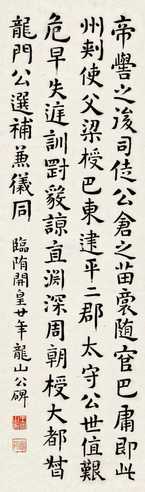 帝嚳之後司徒公倉之苗裔随官巴庸即此
州刺使父梁授巴東建平二郡太守公世值艱
危早失庭訓剛毅諒直淵深周朝授大都督
龍門公選補兼儀同
臨隋開皇廿年龍山公碑